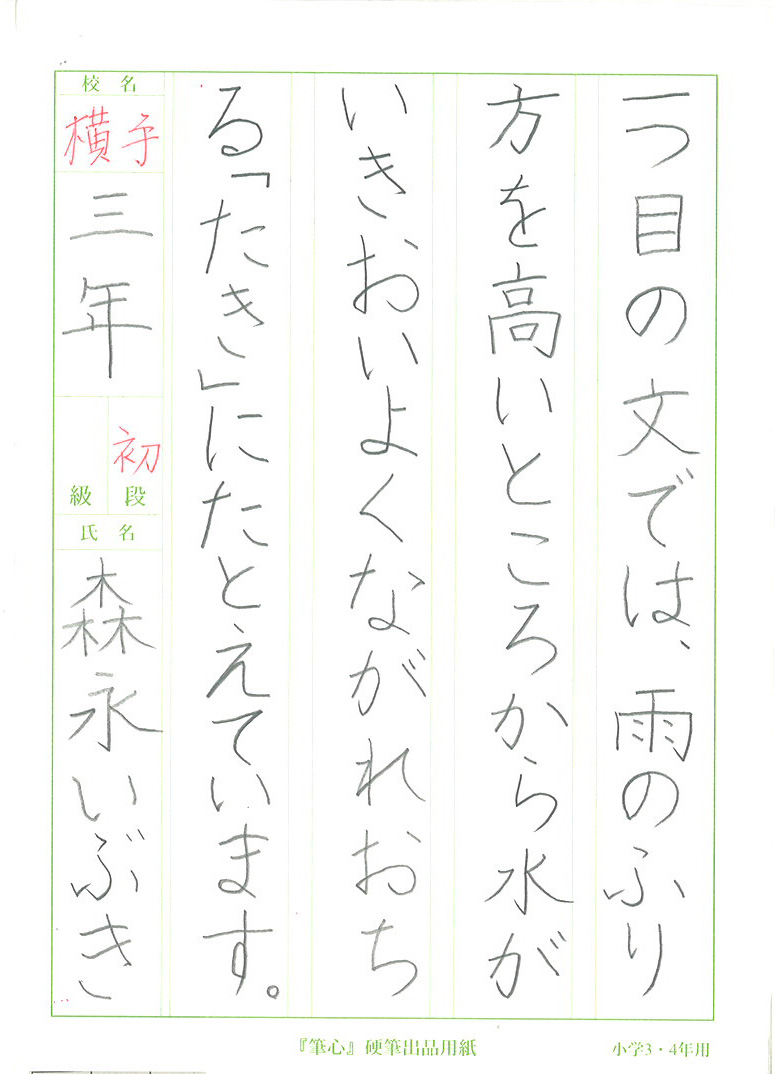 一つ目の文では、雨のふり
方を高いところから水が
いきおいよくながれおち
る「たき」にたとえています。
校名
横手
三年
初
級段
氏名
森永いぶき
『筆心』硬筆出品用紙
小学3・4年用